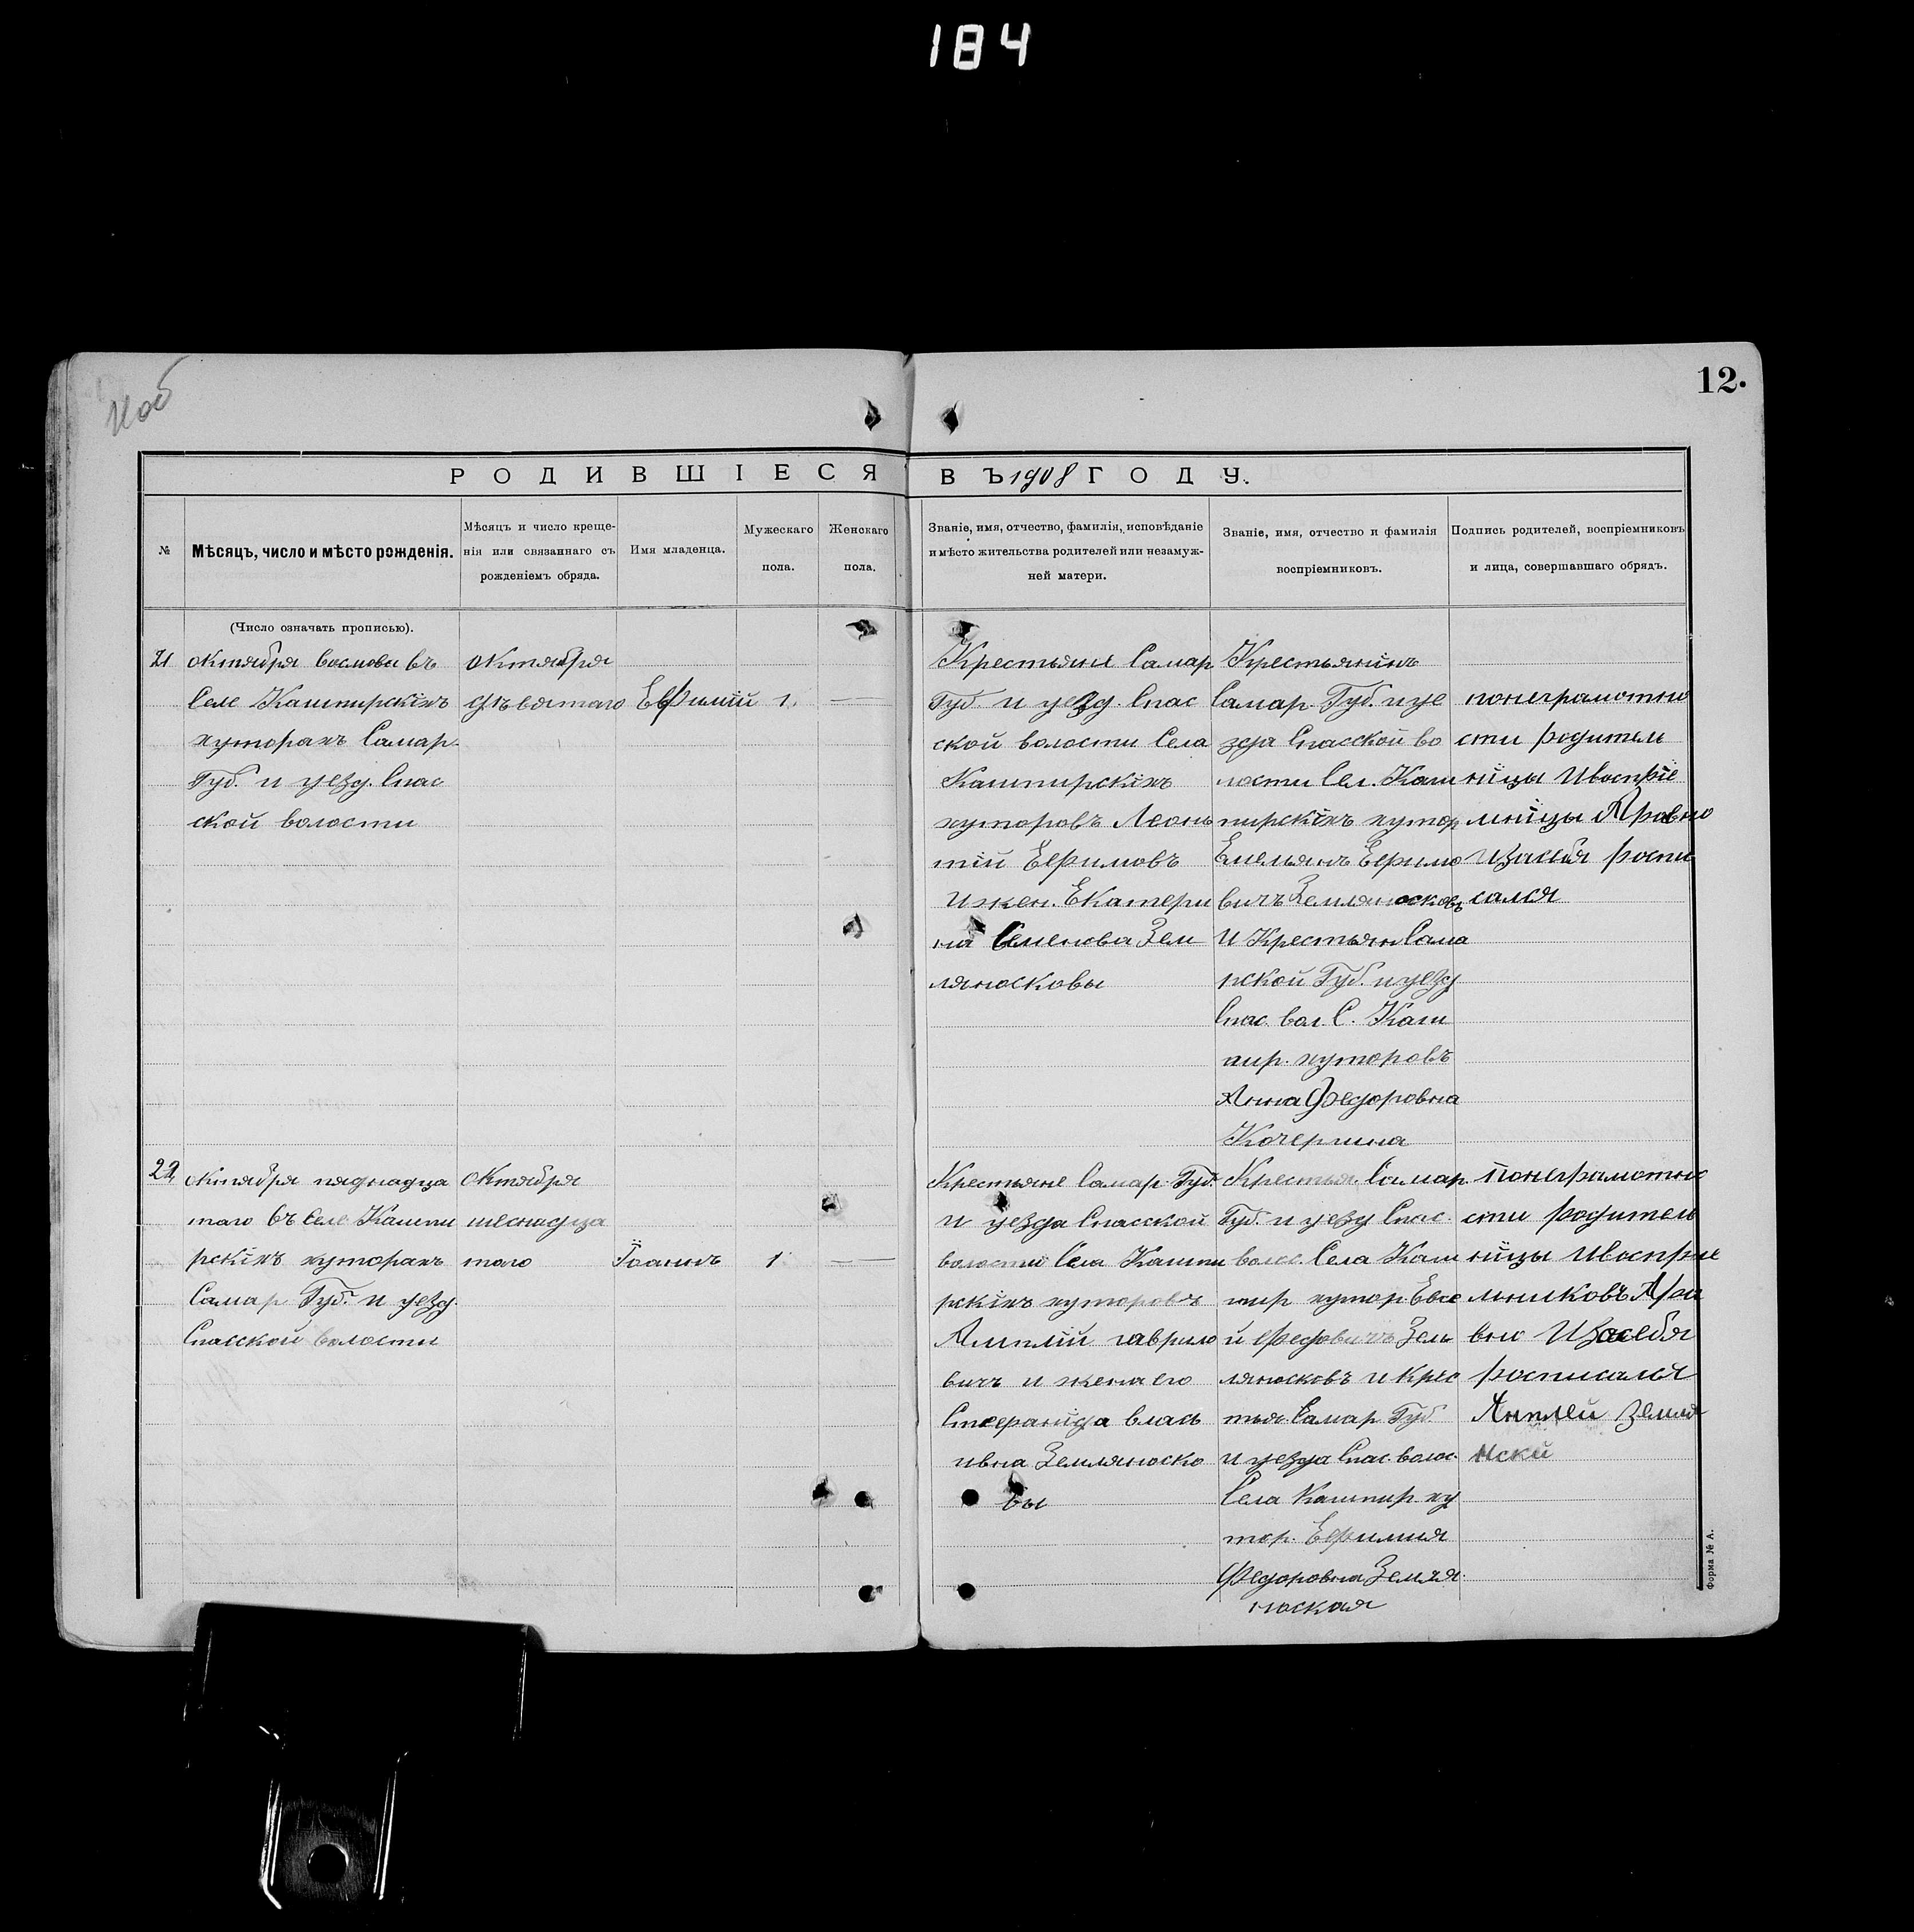 184
12.
РОДИВШІЕСЯ ВЪ 1908 ГОДУ.
№
Мѣсяцъ, число и мѣсто рожденія.
Мѣсяцъ и число креще-
нія или связаннаго съ
рожденіемъ обряда.
Имя младенца.
Мужескаго
пола.
Женскаго
пола.
Званіе, имя, отчество, фамилія, исповѣданіе
и мѣсто жительства родителей или незамуж-
ней матери.
Званіе, имя, отчество и фамилія
воспріемниковъ.
Подпись родителей, воспріемниковъ
и лица, совершавшаго обрядъ.
(Число означать прописью).
21
октября восмова въ
Селе Кашпирскіхъ
хуторахъ Самар.
Губ. и уезд. Спас
ской волости
октября
дѣвятаго
Ефимій
1.
Крестьяне Самар
Губ. и уезд. Спас
ской волости Села
Кашпирскіхъ
хуторовъ Леонь
тій Ефимовъ
И жен. Екатери
на Семенова Зем
ляносковы
Крестьянінъ
Самар. Губ. и уе
зда Спасской во
лости Сел. Каш
пирскіхъ хутор
Емельянъ Ефимо
вичъ Земляносковъ
И Крестьян Сама
рской Губ. и уезд
Спас. вол. С. Каш
пир. хуторовъ
Анна Федоровна
Кочергина
понеграмотно
сти родитель
ніцы Ивоспріе
мніцы Аравно
Изасебя роспи
сался
22
октября пяднадца
таго въ Селе Кашпи
рскіхъ хуторахъ
Самар Губ. и уезд.
Спасской волости
октября
шеснадца
таго
Іоаннъ
1
Крестьяне Самар. Губ.
и уезда Спасской
волости Села Кашпи
рскіхъ хуторовъ
Амплій гаврило
вичъ и жена его
Стефаніда влась
ивна Земляноско
вы
Крестья. Самар
Губ. и уезд Спас.
волос. Села Каш
пир хутор Евсе
й Федовичъ Зем
ляносковъ и Крес
тья. Самар Губ.
и уезда Спас. волос.
Села Кашпир. ху
тор. Ефимия
Федоровна Земля
носкоя
понеграмотно
сти родитель
ніцы Ивоспріе
мниковъ Ара
вно Изасебя
росписался
Анплей Земля
нскй
Форма № А.